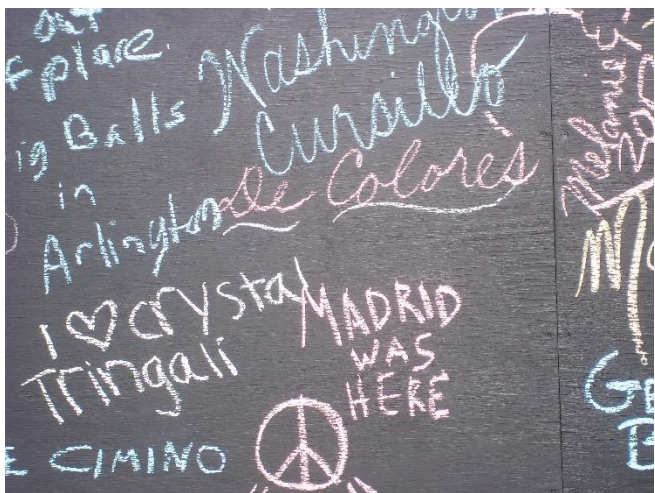 out
of place.
Big Balls
in
Arlington
Washington
Cursillo
De Colores
I ♡ Crystal
Tringali
MADRID
WAS
HERE
E CIMINO
Melanie